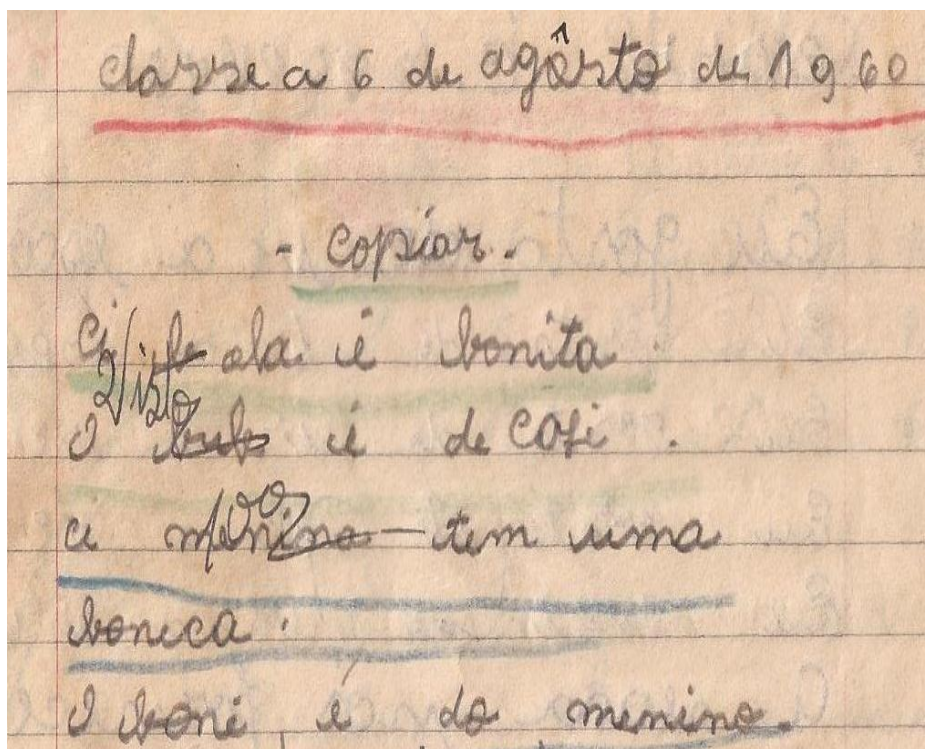 classe a 6 de agôsto de 1960
- copiar.
A bola é bonita
Visto
O bule é de café.
a menina tem uma
boneca.
O boné é do menino.